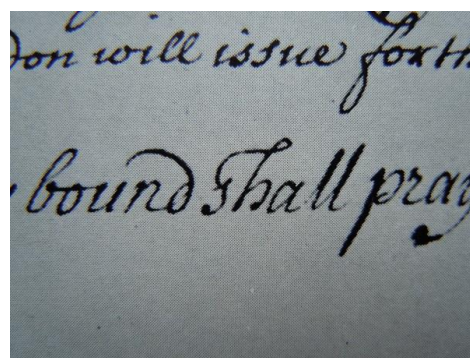 don will issue forth
bound shall pray